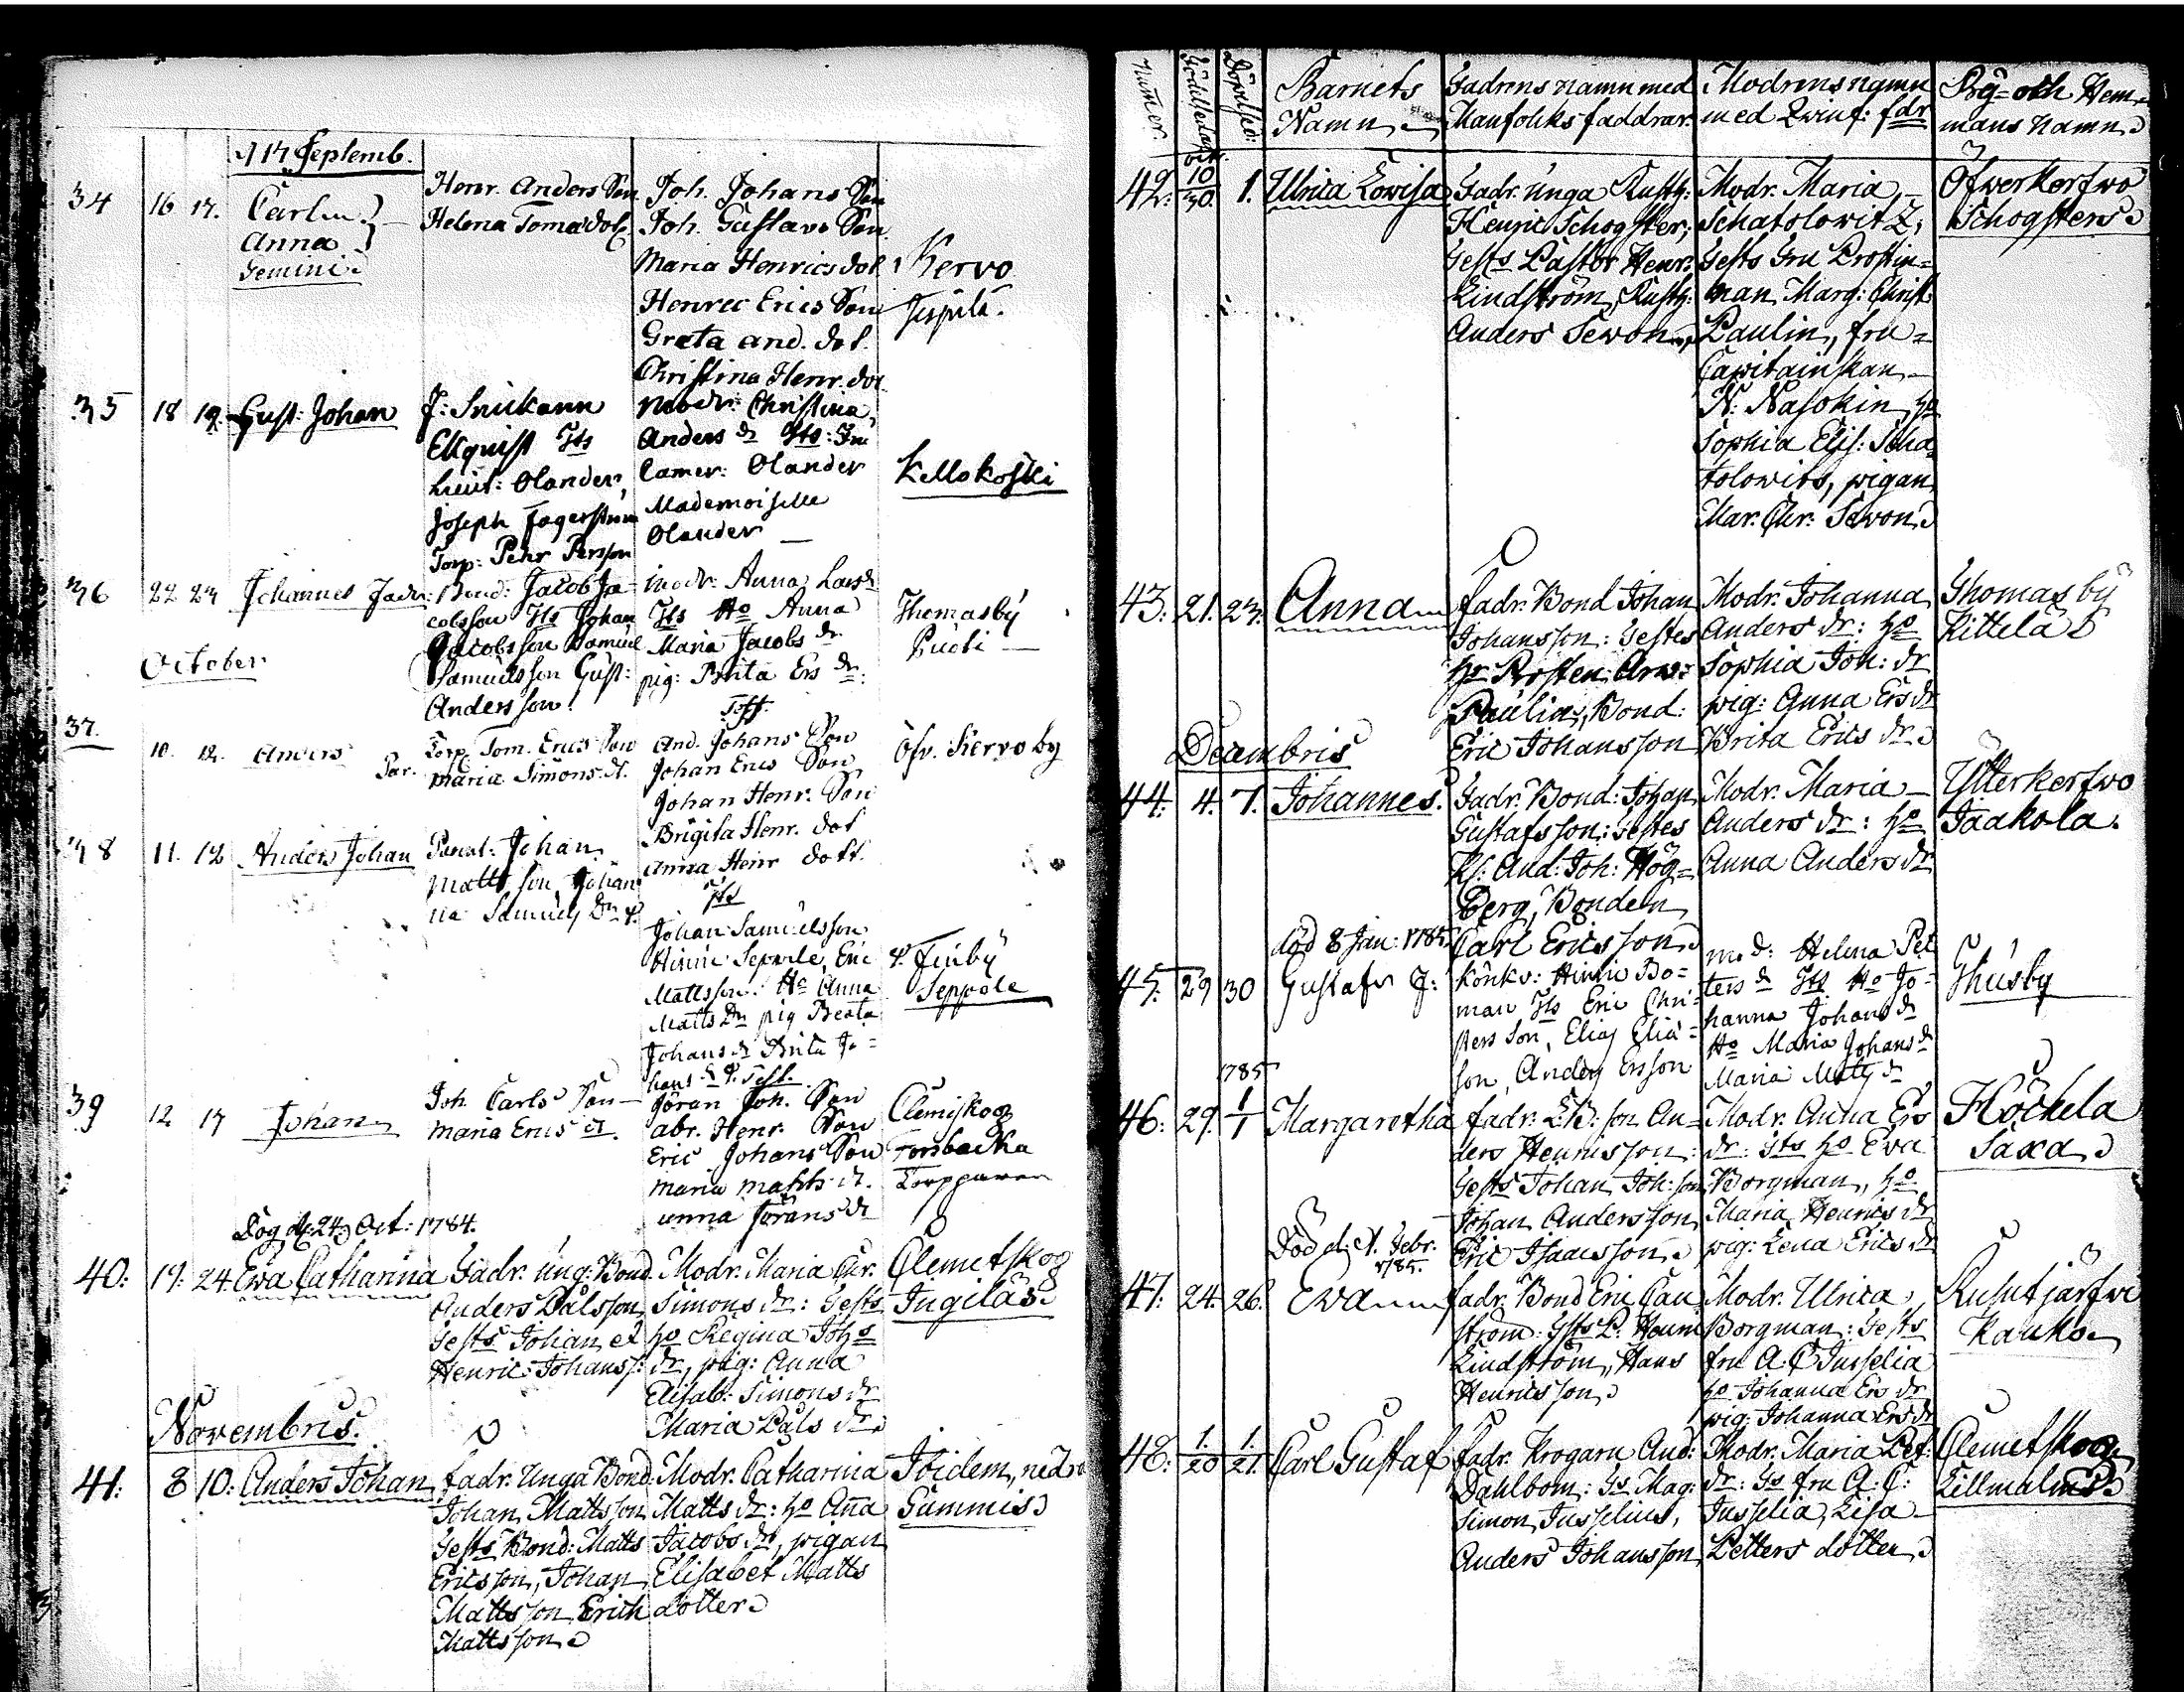 Septemb.
34 16 17. Carl
Anna
Gemini
Henr. Anders Son
Helena Toma dot
Joh. Johans Son
Joh. Gustavs Son
Maria Henrics dot
Henric Erics Son
Greta And. dot.
Christina Henr. dot
Kervo
35 18 19. Gust: Johan
Ekquist
Lieut: Olander,
Joseph Fagerström
Torp: Pehr Persson
modr: Christina
Anders dr
Camer: Olander
Mademoiselle
Olander
Kellokoski
36 22 23 Johannes
Fadr: Bond: Jacob Ja-
cobsson Johan
Jacobsson Samuel
Samuelsson Gust:
Andersson
modr: Anna Lars dr
Ho Anna
Maria Jacobs dr
pig: Brita Ers dr:
Thomasby
October
37. 10. 12. Anders
Par. Torp. Tom. Erics Son
Maria Simons d.
Test.
And. Johans Son
Johan Erics Son
Johan Henr. Son
Brigita Henr. dot
Anna Henr dott.
Öfv. Kervo by
38 11. 12 Anders Johan
Johan
Matts son, Johan
na Samuels Dr
Johan Samuelsson
Eric
Mattsson: Ho Anna
Matts Dr pig Beata
Johans dr Brita Jo-
hans dr
Finby
Seppälä
39 12 17 Johan
Joh. Carls Son
Maria Erics d.
Göran Joh. Son
Abr. Henr. Son
Eric Johans Son
Maria Matts d.
Anna Jörans d
Clemiskog
Torpparen
Dog d. 24 Oct: 1784.
40: 19. 24. Ewa Catharina
Fadr. Ung: Bond
Anders Pålsson
Gests Johan et
Henric Johanss:
Modr. Maria Chr.
Simons dr: Gests
ho Regina Johs
dr, pig: Anna
Elisab: Simons dr
Maria Påls dr
Clemetskog
Ingilas
Novembris.
41. 8 10: Anders Johan
Fadr. Unga Bond
Johan Mattsson
Gests Bond: Matts
Ericsson, Johan
Mattsson, Erich
Mattsson
Modr. Catharina
Matts dr: ho Anna
Jacobs dr, pigan
Elisabet Matts
dotter
Ibidem, nedra
Gummis
Numer.
Födelsedag
Döpelsed:
Barnets
Namn
Fadrens namn med
Manfolks faddrar.
Modrens namn
med Qwinf: fdr
By- och Hem-
mans namn
42. 10/30. 1. Ulrica Lowisa
Fadr. Unga Rusth:
Henric Schogster;
Gests Pastor Henr:
Lindström, Rusth:
Anders Sewon
Modr. Maria
Schatolowitz,
Gests Fru Prostin-
nan Marg: Christ:
Paulin, fru
Capitainskan
N: Nasokin, ho
Sophia Elis: Scha
tolowits, pigan
Mar. Chr: Sewon
Öfwerkerfwo
Schogsters
43. 21. 23. Anna
Fadr. Bond Johan
Johansson: Gestes
Hr Prosten Arw:
Paulin, Bond:
Eric Johansson
Modr. Johanna
Anders dr: ho
Sophia Joh: dr
pig: Anna Ers dr
Brita Erics dr
Thomasby
Kittelä
Decembris
44. 4. 7. Johannes.
Fadr. Bond: Johan
Gustafsson: Gestes
And: Joh: Hög-
berg, Bonden
Carl Ericsson
Modr. Maria
Anders dr: ho
Anna Anders dr
Ytterkerfwo
Jaakola.
död 8 Jan: 1785
45. 29 30 Gustafv J:
Bo-
man Eric Chri-
sters Son, Elias Elia-
son, Anders Ersson
mod: Helena Pet
ters dr Ho Jo-
hanna Johans dr
Ho Maria Johans dr
Maria Matts dr
Husby
1785
46: 29. 1/1 Margaretha
Fadr. An-
ders Henricsson:
Gests Johan Joh: son
Johan Andersson
Eric Isacsson
Modr. Anna Ers
dr: Gsts ho Ewa
Borgman, ho
Maria Henrics dr
pig: Lena Erics dr
Höckela
Saxa
Död d. Febr.
1785.
47. 24. 26. Ewa
Fadr. Bond Eric Cau
ström: Gsts P. Henric
Lindström, Hans
Henricsson
Modr. Ulrica
Borgman: Gests
fru A. C Jusselia
ho Johanna Ers dr
pig: Johanna Ers dr
Rusutjärfwi
Kauko
48. 1./20 1./21. Carl Gustaf
Fadr. Krogarn And:
Dahlbom: Gs Mag:
Simon Jusselius,
Anders Johansson
Modr. Maria Pet:
dr: Gs fru A: C:
Jusselia, Lisa
Petters dotter
Clemetskog
Lillmalms